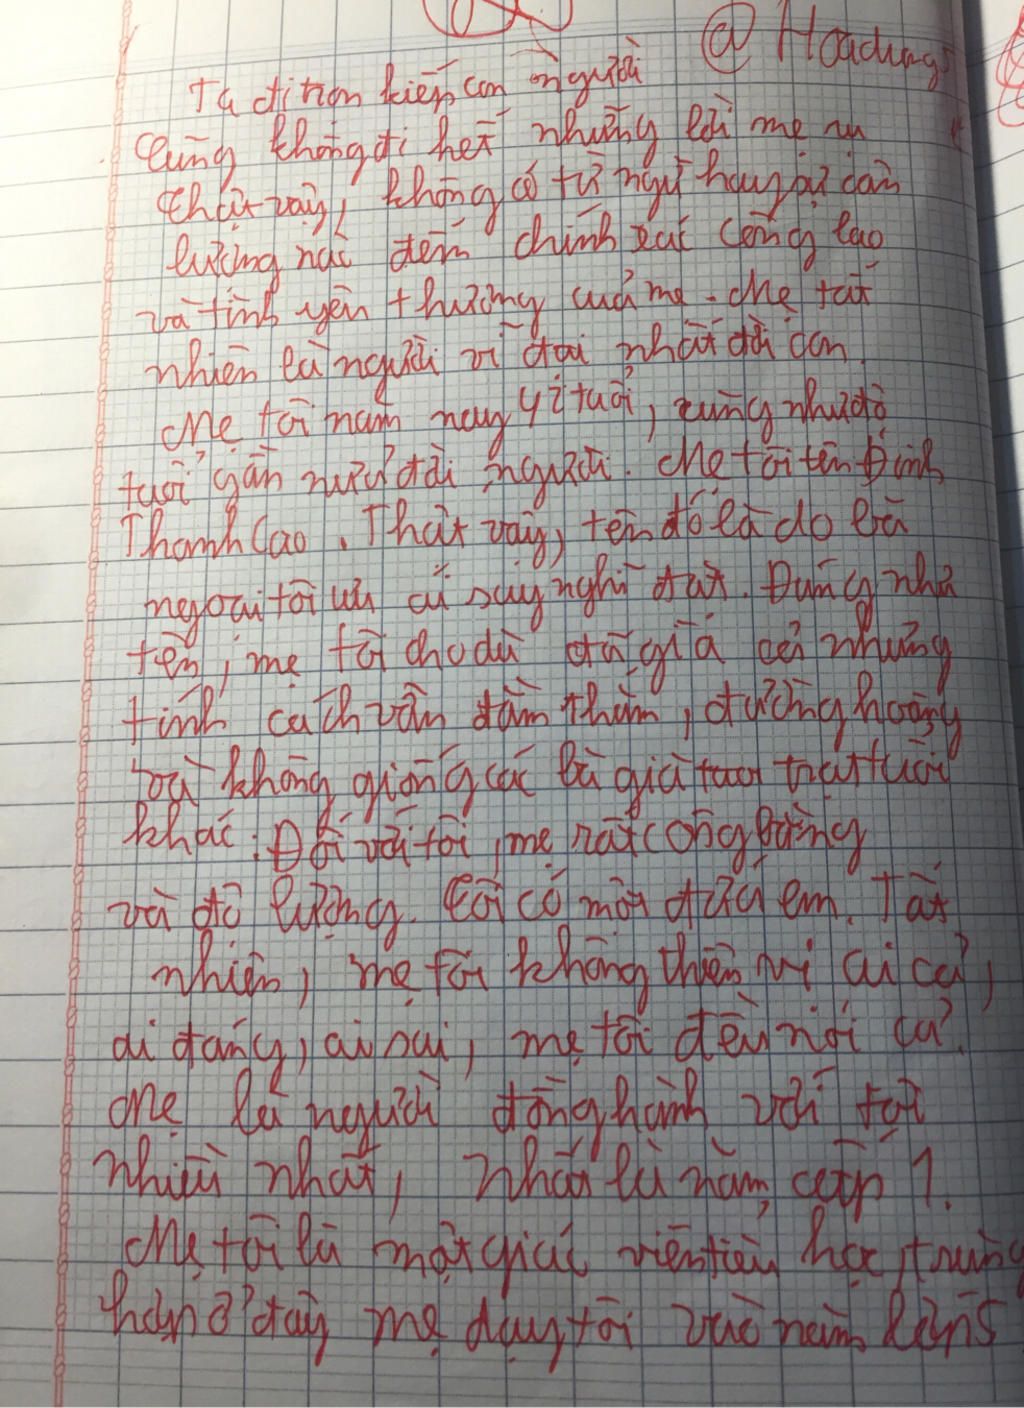 @ Hoadung
Ta đi trọn kiếp con người
Cũng không đi hết những lời mẹ ru
Thật vậy, không có từ ngữ hay sự cân
lường nào đếm chính xác công lao
và tình yêu thương của mẹ. Mẹ tất
nhiên là người vĩ đại nhất đời con.
Mẹ tôi năm nay 42 tuổi, cũng như độ
tuổi gần nửa đời người. Mẹ tôi tên Đinh
Thanh Cao. Thật vậy, tên đó là do bà
ngoại tôi suy nghĩ đặt. Đúng như
tên, mẹ tôi cho dù đã già cả nhưng
tính cách vẫn đằm thắm, đường hoàng
và không giống các bà già trạc tuổi
khác. Đối với tôi, mẹ rất công bằng
và độ lượng. Tôi có một đứa em. Tất
nhiên, mẹ tôi không thiên vị ai cả,
ai đúng, ai sai, mẹ tôi đều nói cả.
Mẹ là người đồng hành với tôi
nhiều nhất, nhất là năm cấp 1.
Mẹ tôi là một giáo viên tiểu học, trùng
hợp ở đây mẹ dạy tôi vào năm lớp 5